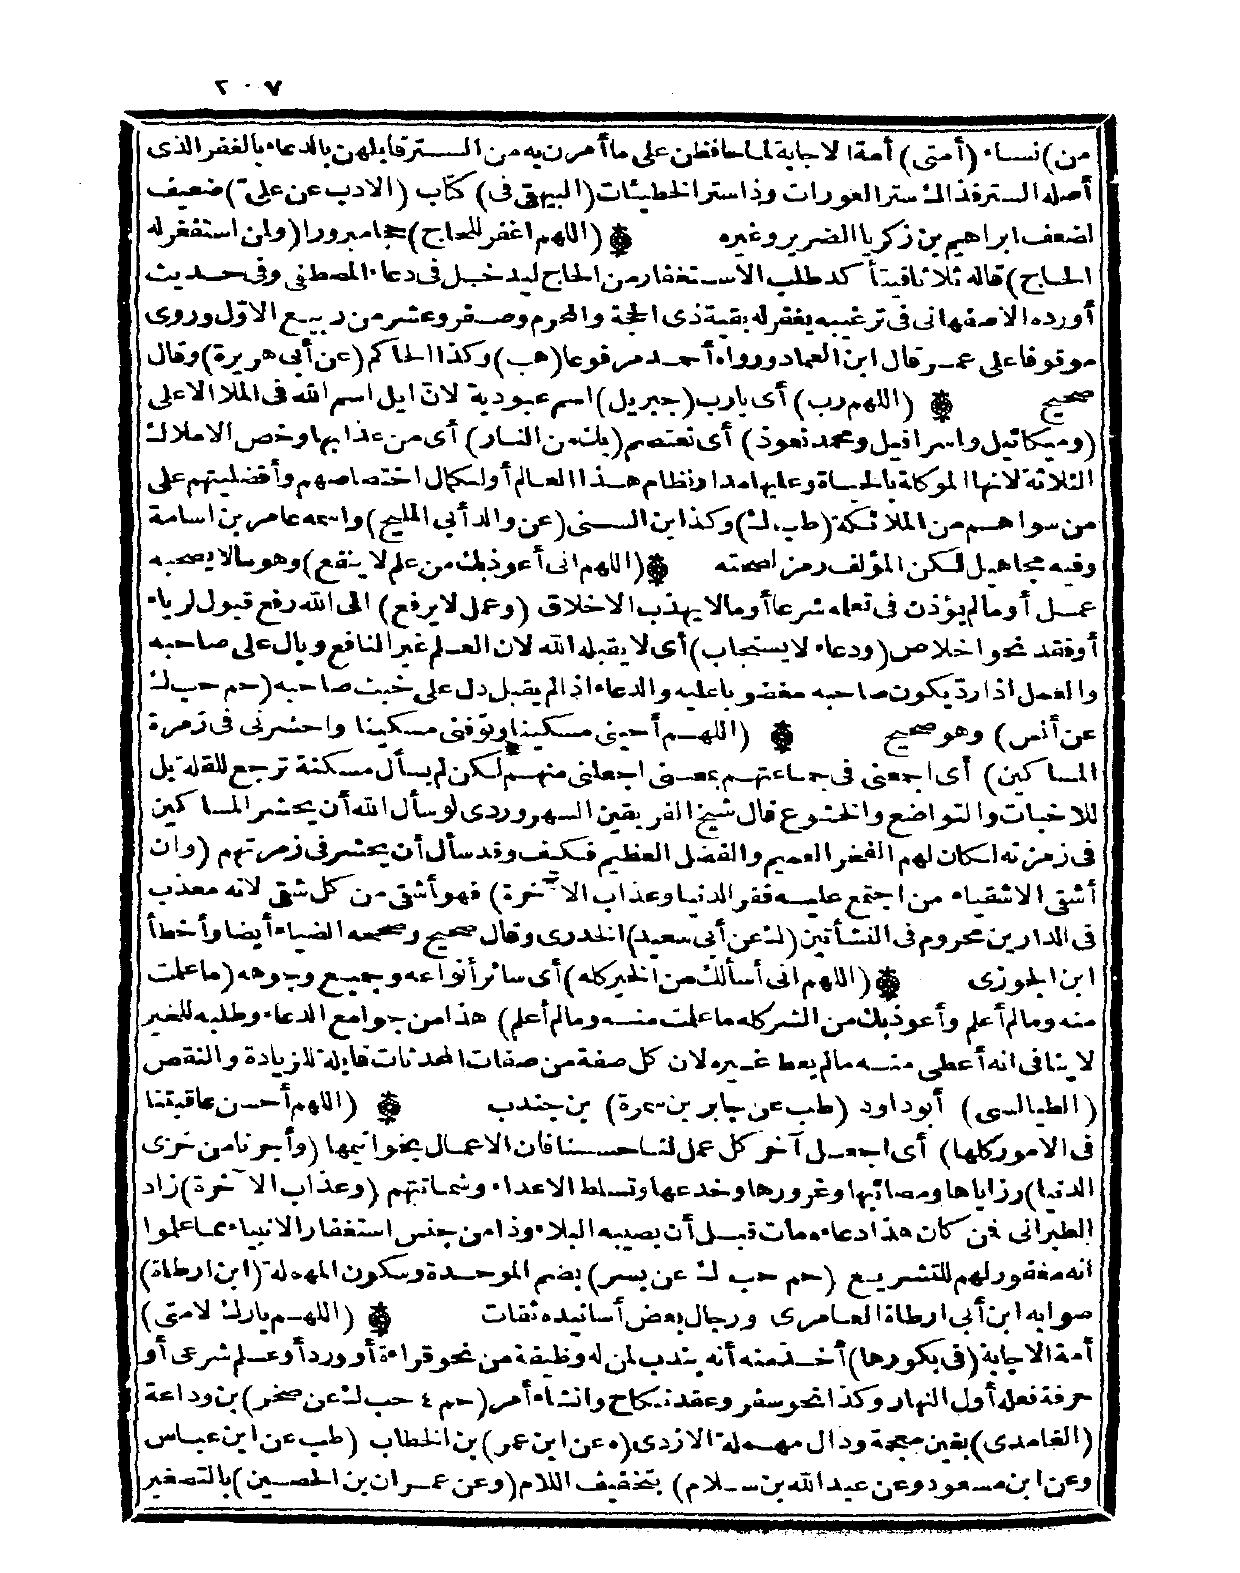 ٢٠٧
من) نساء (أمتى) أمة الاجابة لما حافظن على ما أمرن به من الستر قابلهن بالدعاء بالغفر الذى
أصله الستر فذاك ستر العورات وذا ستر الخطيئات (البيهقى فى) كتاب (الادب عن على) ضعيف
لضعف ابراهيم بن زكريا الضرير وغيره ۞ (اللهم اغفر للحاج) حجا مبرورا (ولمن استغفر له
الحاج) قاله ثلاثا فيتأكد طلب الاستغفار من الحاج ليدخل فى دعاء المصطفى وفى حديث
أورده الاصفهانى فى ترغيبه يغفر له بقية ذى الحجة والمحرم وصفر وعشر من ربيع الاوّل وروى
موقوفا على عمر قال ابن العماد ورواه أحمد مرفوعا (هب) وكذا الحاكم (عن أبى هريرة) وقال
صحيح ۞ (اللهم رب) أى يارب (جبريل) اسم عبودية لانّ ايل اسم الله فى الملا الاعلى
(وميكائيل واسرافيل ومحمد نعوذ) أى نعتصم (بك من النار) أى من عذابها وخص الاملاك
الثلاثة لانها الموكلة بالحياة وعليها مدار نظام هذا العالم أو لكمال اختصاصهم وأفضليتهم على
من سواهم من الملائكة (طب ك) وكذا ابن السنى (عن والد أبى المليح) واسمه عامر بن اسامة
وفيه مجاهيل لكن المؤلف رمز لصحته ۞ (اللهم انى أعوذ بك من علم لا ينفع) وهو مالا يصحبه
عمل أو مالم يؤذن فى تعلمه شرعا أو مالا يهذب الاخلاق (وعمل لا يرفع) الى الله رفع قبول لرياء
أو فقد نحو اخلاص (ودعاء لا يستجاب) أى لا يقبله الله لان العلم غير النافع وبال على صاحبه
والعمل اذا ردّ يكون صاحبه مغضوبا عليه والدعاء اذا لم يقبل دل على خبث صاحبه (حم حب ك
عن أنس) وهو صحيح ۞ (اللهم أحينى مسكينا وتوفنى مسكينا واحشرنى فى زمرة
المساكين) أى اجمعنى فى جماعتهم بمعنى اجعلنى منهم لكن لم يسأل مسكنة ترجع للقلة بل
للاخبات والتواضع والخشوع قال شيخ الفريقين السهروردى لو سأل الله أن يحشر المساكين
فى زمرته لكان لهم الفخر العميم والفضل العظيم فكيف وقد سأل أن يحشر فى زمرتهم (وان
أشقى الاشقياء من اجتمع عليه فقر الدنيا وعذاب الآخرة) فهو أشقى من كل شقى لانه معذب
فى الدارين محروم فى النشأتين (ك عن أبى سعيد) الخدرى وقال صحيح وصححه الضياء أيضا وأخطأ
ابن الجوزى ۞ (اللهم انى أسألك من الخير كله) أى سائر أنواعه وجميع وجوهه (ما علمت
منه ومالم أعلم وأعوذ بك من الشر كله ما علمت منه ومالم أعلم) هذا من جوامع الدعاء وطلبه للخير
لا ينافى انه أعطى منه مالم يعط غيره لان كل صفة من صفات المحدثات قابلة للزيادة والنقص
(الطيالسى) أبو داود (طب عن جابر بن سمرة) بن جندب ۞ (اللهم أحسن عاقبتنا
فى الامور كلها) أى اجعل آخر كل عمل لنا حسنا فان الاعمال بخواتيمها (وأجرنا من خزى
الدنيا) رزاياها ومصائبها وغرورها وخدعها وتسلط الاعداء وشماتتهم (وعذاب الآخرة) زاد
الطبرانى فمن كان هذا دعاءه مات قبل أن يصيبه البلاء وذا من جنس استغفار الانبياء مما علموا
انه مغفور لهم للتشريع (حم حب ك عن بسر) بضم الموحدة وسكون المهملة (ابن ارطاة)
صوابه ابن أبى ارطاة العامرى ورجال بعض أسانيده ثقات ۞ (اللهم بارك لامتى)
أمة الاجابة (فى بكورها) أخذ منه أنه يندب لمن له وظيفة من نحو قراءة أو ورد أو علم شرعى أو
حرفة فعله أول النهار وكذا نحو سفر وعقد نكاح وانشاء أمر (حم ٤ حب ك عن صخر) بن وداعة
(الغامدى) بغين معجمة ودال مهملة الازدى (ه عن ابن عمر) بن الخطاب (طب عن ابن عباس
وعن ابن مسعود وعن عبد الله بن سلام) بتخفيف اللام (وعن عمران بن الحصين) بالتصغير